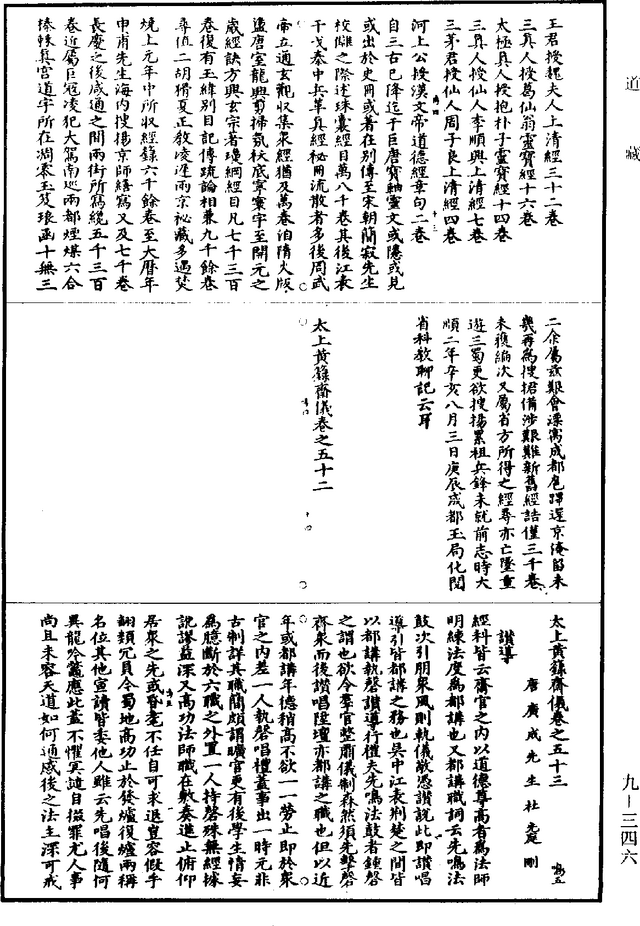 道藏
王君授魏夫人上清經三十二卷
三真人授葛仙翁靈寶經十六卷
太極真人授抱朴子靈寶經十四卷
三真人授仙人李順興上清經七卷
三茅君授仙人周子良上清經四卷
河上公授漢文帝道德經章句二卷
自三古已降迄于巨唐寶軸靈文或隱或見
或出於史冊或著在別傳至宋朝簡寂先生
校讎之際述珠囊經目萬八千卷其後江表
干戈秦中兵革真經秘冊流散者多後周武
帝立通玄觀收集衆經猶及萬卷洎隋火版
蕩唐室龍興剪掃氛祅底寧寰宇至開元之
歲經訣方興玄宗著瓊綱經目凡七千三百
卷復有玉緯別目記傳疏論相兼九千餘卷
尋值二胡猾夏正教凌遲兩京秘藏多遇焚
燒上元年中所收經籙六千餘卷至大曆年
申甫先生海内搜揚京師繕寫又及七千卷
長慶之後咸通之間兩街所寫纔五千三百
卷近屬巨寇凌犯大駕南巡兩都煙煤六合
榛棘真宮道宇所在凋零玉笈琅函十無三
二余屬兹艱會漂寓成都扈蹕還京淹留未
幾再為搜捃備涉艱難新舊經誥僅三千卷
未獲編次又屬省方所得之經尋亦亡墜重
遊三蜀更欲搜揚累阻兵鋒未就前志時大
順二年辛亥八月三日庚辰成都玉局化閲
省科教聊記云耳
太上黄籙齋儀卷之五十二
太上黄籙齋儀卷之五十三
唐廣成先生杜光庭刪
讚導
經科皆云齋官之内以道德尊高者為法師
明練法度為都講也又都講職詞云先鳴法
鼓次引朋衆風則軌儀敬憑讚說此即讚唱
導引皆都講之務也吳中江表荊楚之間皆
以都講執磬讚導行禮夫先鳴法鼓者鍾磬
之謂也欲令羣官整肅儀制森然須先擊磬
齊衆而後讚唱陞壇亦都講之職也但以近
年或都講年德稍高不欲一一勞止即於衆
官之内差一人執磬唱禮蓋事出一時元非
古制詳其職簡頗謂曠官更有後學生情妄
為臆斷於六職之外置一人持磬殊無經據
訛謬益深又高功法師職在敷奏進止俯仰
居衆之先或昏耄不任自可求退豈容假手
翻類冗員今蜀地高功止於發爐復爐兩稱
名位其他宣讀皆委他人雖云先唱後隨何
異龍吟虀應此蓋不懼冥譴自掇罪尤人事
尚且未容天道如何通感後之法主深可戒
九－三四六